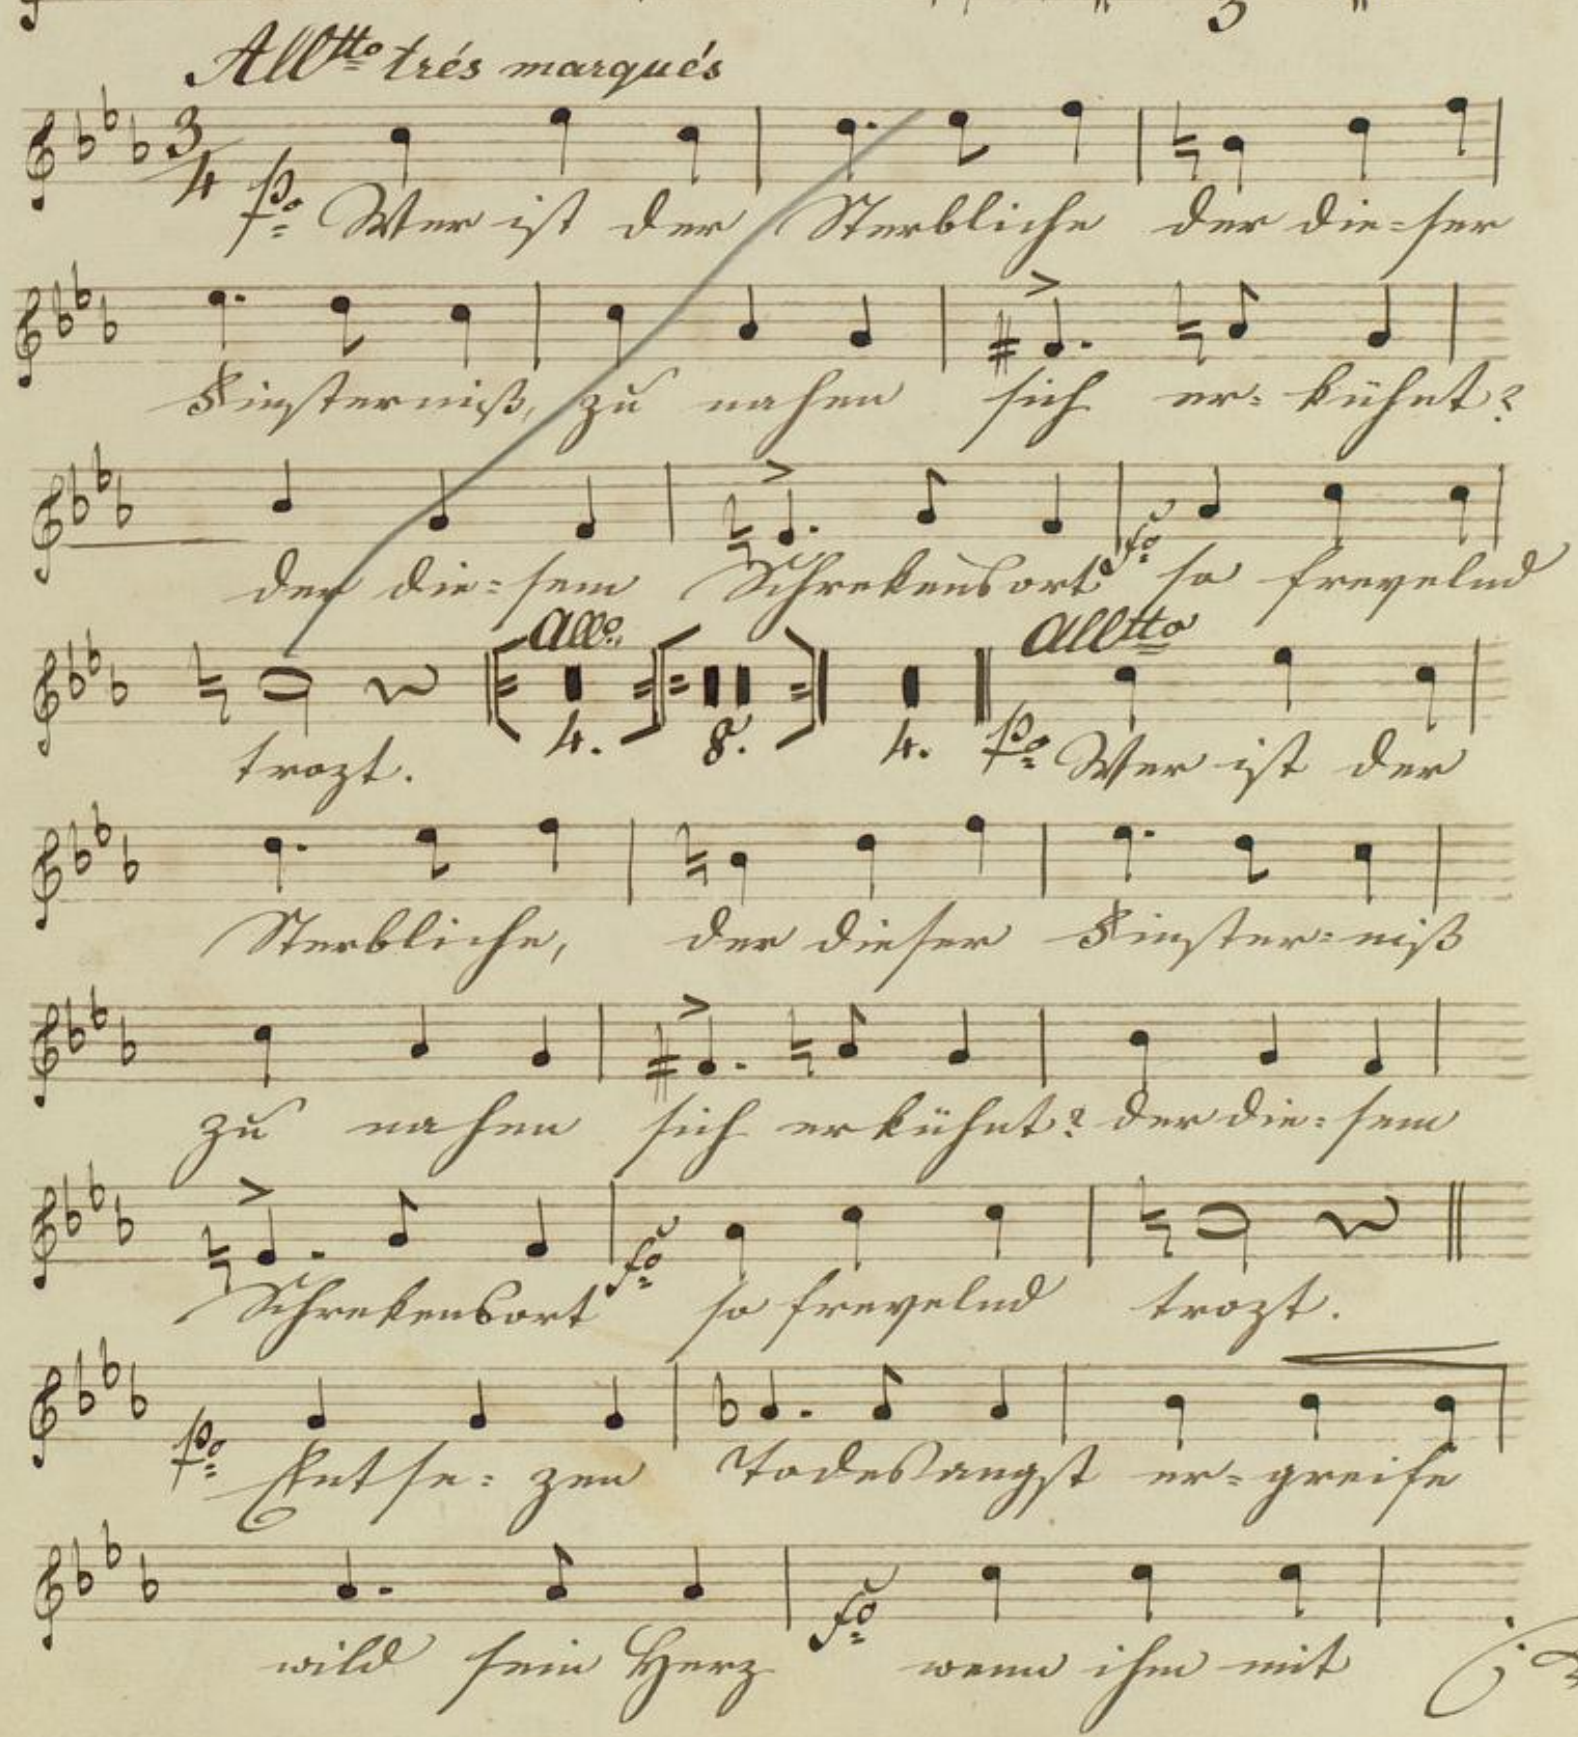 Alltto trés marqués
3/4 po Wer ist der Sterbliche der die=ser
Finsterniß, zu nahen sich er= kühnt?
der die=sem Schrekensort fo so frevelnd
Allo. Alltto
trozt. 4. 8. 4. po Wer ist der
Sterbliche, der dieser Finster=niß
zu nahen sich erkühnt? der die=sem
Schrekensort fo so frevelnd trozt.
po Entse=zen Todesangst er=greife
wild sein Herz fo wenn ihm mit